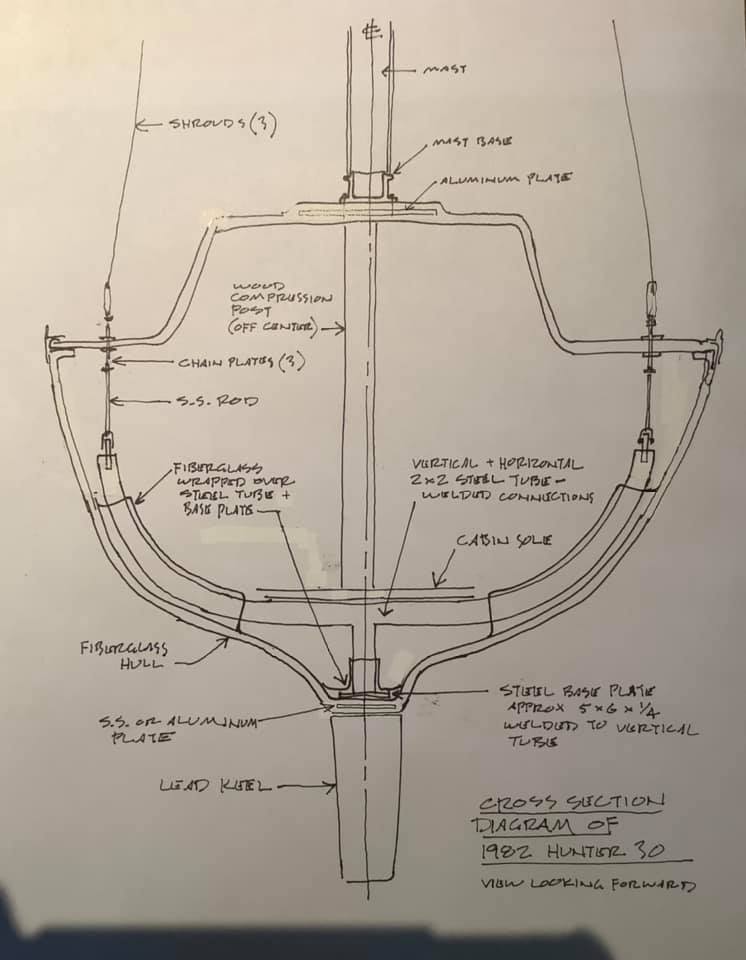 ℄
MAST
SHROUDS (3)
MAST BASE
ALUMINUM PLATE
WOOD
COMPRESSION
POST
(OFF CENTER)
CHAIN PLATES (3)
S.S. ROD
FIBERGLASS
WRAPPED OVER
STEEL TUBE +
BASE PLATE
VERTICAL + HORIZONTAL
2x2 STEEL TUBE -
WELDED CONNECTIONS
CABIN SOLE
FIBERGLASS
HULL
S.S. OR ALUMINUM
PLATE
STEEL BASE PLATE
APPROX 5 x 6 x 1/4
WELDED TO VERTICAL
TUBE
LEAD KEEL
CROSS SECTION
DIAGRAM OF
1982 HUNTER 30
VIEW LOOKING FORWARD